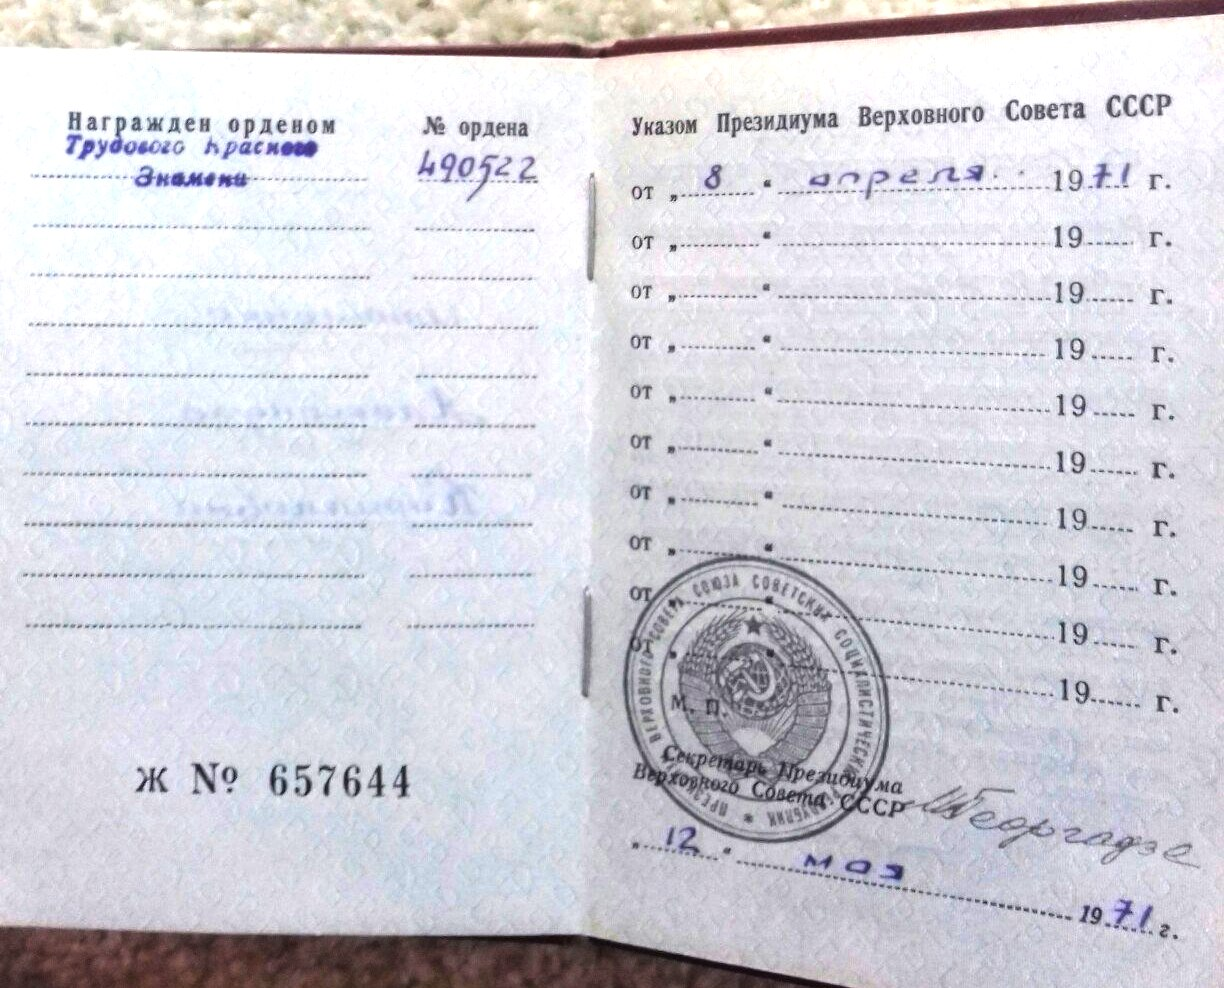 Награжден орденом
Трудового Красного
Знамени
№ ордена
490522
Ж № 657644
Указом Президиума Верховного Совета СССР
от „ 8 “ апреля 1971 г.
от „ “ 19 г.
от „ “ 19 г.
от „ “ 19 г.
от „ “ 19 г.
от „ “ 19 г.
от „ “ 19 г.
от „ “ 19 г.
от „ “ 19 г.
от „ “ 19 г.
ПРЕЗИДИУМ ВЕРХОВНОГО СОВЕТА СОЮЗА СОВЕТСКИХ СОЦИАЛИСТИЧЕСКИХ РЕСПУБЛИК
М. П.
Секретарь Президиума
Верховного Совета СССР
М Георгадзе
„ 12 “ мая 1971 г.